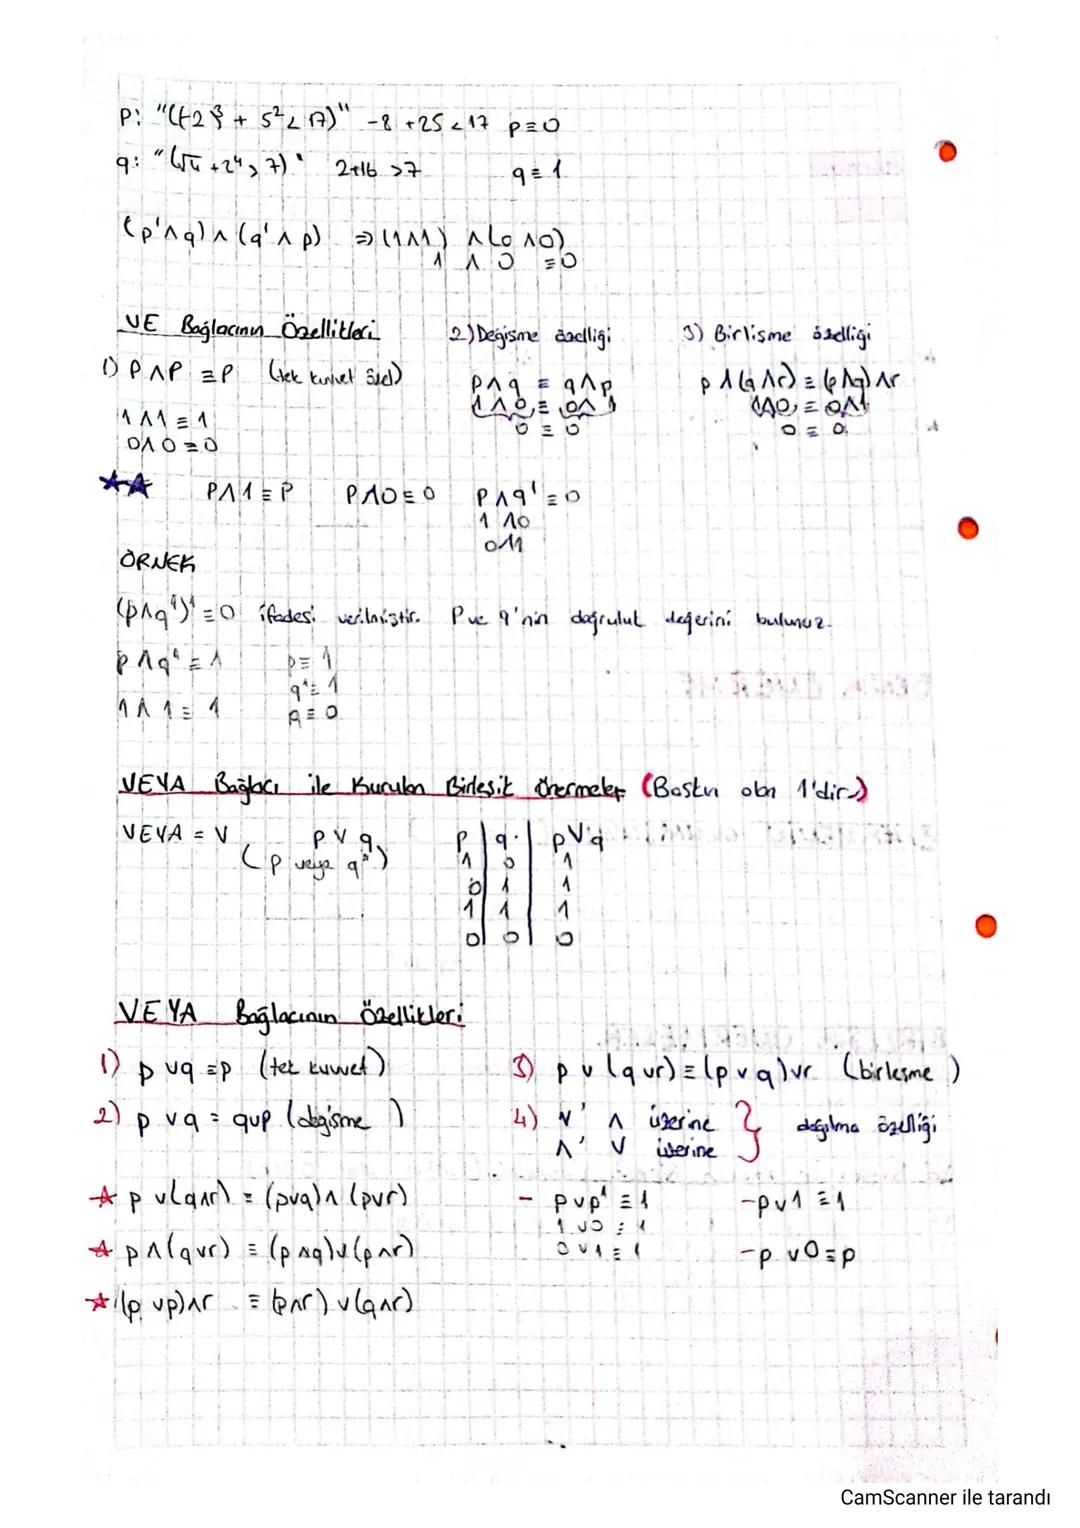 p: "((-2)³ + 5² < 17)" -8 +25 < 17 p ≡ 0
q: "(√4 + 2⁴ > 7)" 2+16 > 7 q ≡ 1
(p'∧q) ∧ (q'∧p) ⇒ (1∧1) ∧ (0∧0)
1 ∧ 0 ≡ 0
VE Bağlacının Özellikleri
1) P∧P ≡ P (tek kuvvet özel)
1∧1 ≡ 1
0∧0 ≡ 0
2) Değişme özelliği
p∧q ≡ q∧p
1∧0 ≡ 0∧1
0 ≡ 0
3) Birlişme özelliği
p∧(q∧r) ≡ (p∧q)∧r
1∧0 ≡ 0∧1
0 ≡ 0
★★ P∧1 ≡ P P∧0 ≡ 0 P∧q' ≡ 0
1∧0
0∧1
ÖRNEK
(p∧q')' ≡ 0 ifadesi verilmiştir. P ve q'nin doğruluk değerini bulunuz.
p∧q' ≡ 1 p ≡ 1
q' ≡ 1
1∧1 ≡ 1 q ≡ 0
VEYA Bağlacı ile Kurulan Birleşik Önermeler (Baskın olan 1'dir)
VEYA = V p V q
(p veya q")
p | q | pVq
1 0 1
0 1 1
1 1 1
0 0 0
VEYA Bağlacının Özellikleri
1) p∨q ≡ p (tek kuvvet)
2) p∨q ≡ q∨p (değişme)
3) p∨(q∨r) ≡ (p∨q)∨r (birleşme)
4) V' ∧ üzerine
∧' V üzerine } dağılma özelliği
★ p∨(q∧r) ≡ (p∨q)∧(p∨r)
★ p∧(q∨r) ≡ (p∧q)∨(p∧r)
★ (p∨p)∧r ≡ (p∧r)∨(q∧r)
- p∨p' ≡ 1
1∨0 ≡ 1
0∨1 ≡ 1
- p∨1 ≡ 1
- p∨0 ≡ p
CamScanner ile tarandı